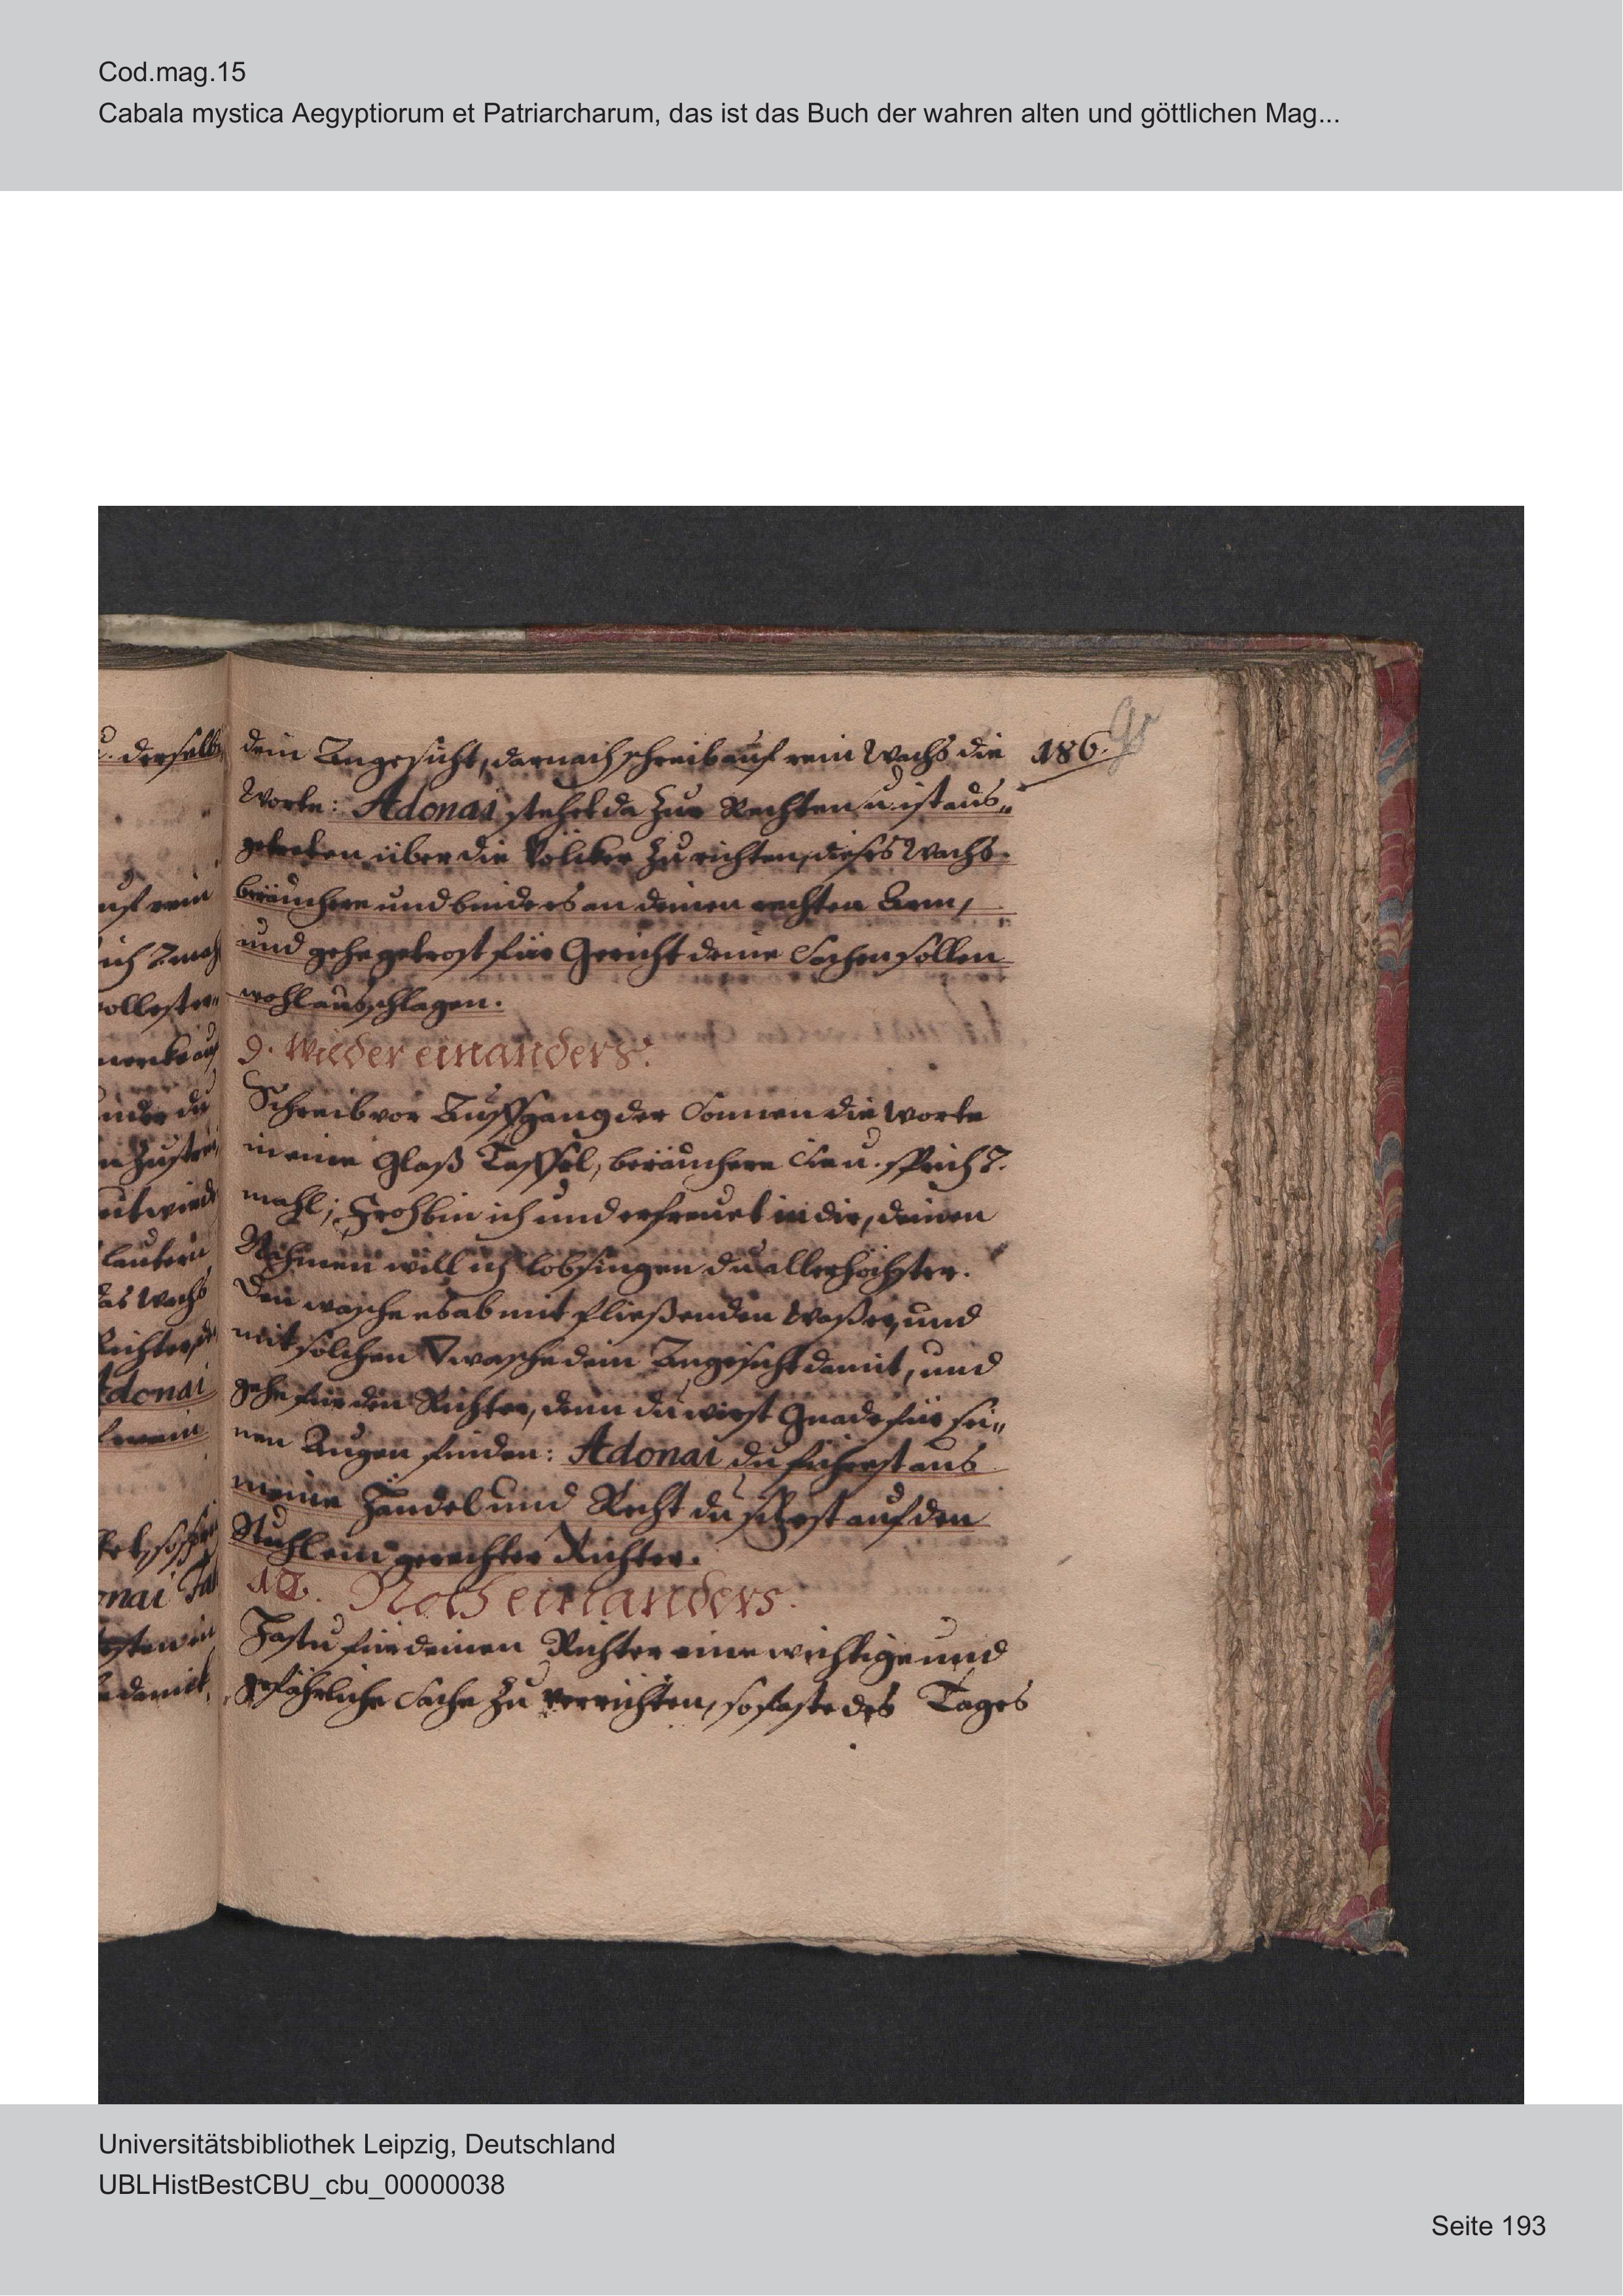 Cod.mag.15
Cabala mystica Aegyptiorum et Patriarcharum, das ist das Buch der wahren alten und göttlichen Mag...
186.
dein Angesicht, darnach schreib auf rein Wachs die
Worte: Adonai stehet da zur Rechten u. ist aus„
getreten über die Völcker zu richten, dieses Wachs
beräuchere und binde es an deinen rechten Arm,
und gehe getrost für Gericht deine Sachen sollen
wohl ausschlagen.
9. Wieder ein anders.
Schreib vor Auffgang der Sonnen die Worte
in eine Glaß Taffel, beräuchere sie u. sprich 7.
mahl; Froh bin ich und erfreuet in dir, deinen
Nahmen will ich lobsingen du allerhöchster.
Den wasche es ab mit fließenden Waßer, und
mit solchen 🜄 wasche dein Angesicht damit, und
gehe für den Richter, denn du wirst Gnade für sei„
nen Augen finden: Adonai du führest aus
meine Händel und Recht du sitzest auf den
Stuhl ein gerechter Richter.
10. Noch ein anders.
Hastu für deinen Richter eine wichtige und
gefährliche Sache zu verrichten, so faste des Tages
Universitätsbibliothek Leipzig, Deutschland
UBLHistBestCBU_cbu_00000038
Seite 193